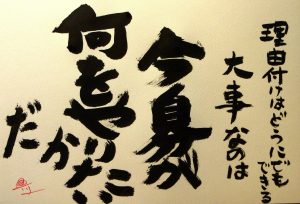 理由付けはどうにでもできる
大事なのは
今自分が
何をやりたいか
だ